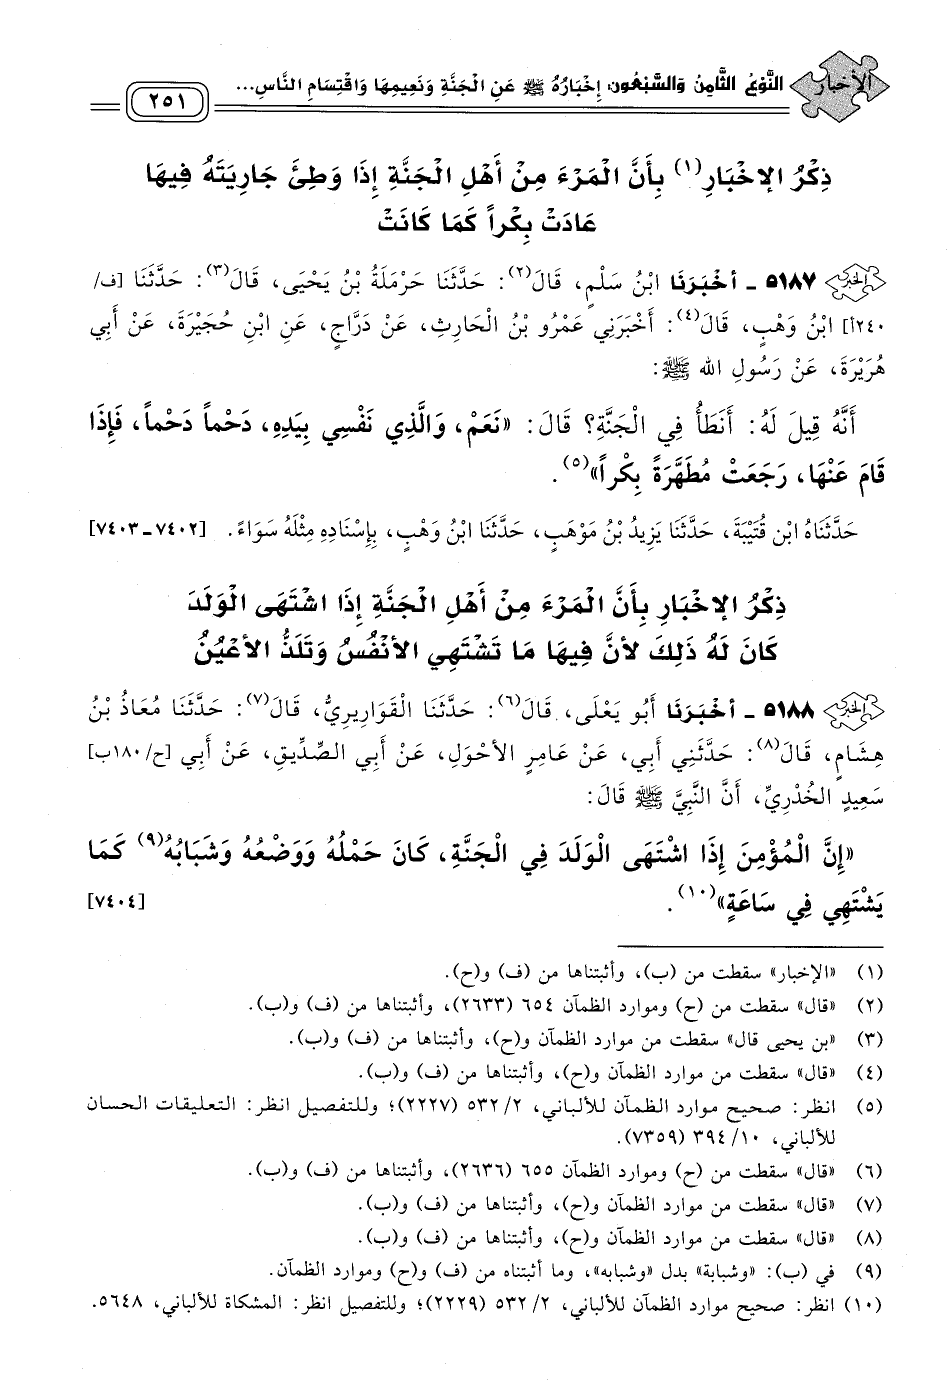 الأخبار
النَّوْعُ الثَّامِنُ وَالسَّبْعُونَ: إِخْبَارُهُ ﷺ عَنِ الْجَنَّةِ وَنَعِيمِهَا وَاقْتِسَامِ النَّاسِ...
٢٥١
ذِكْرُ الإخْبَارِ(١) بِأَنَّ الْمَرْءَ مِنْ أَهْلِ الْجَنَّةِ إِذَا وَطِئَ جَارِيَتَهُ فِيهَا
عَادَتْ بِكْراً كَمَا كَانَتْ
٥١٨٧ ـ أَخْبَرَنَا ابْنُ سَلْمٍ، قَالَ(٢): حَدَّثَنَا حَرْمَلَةُ بْنُ يَحْيَى، قَالَ(٣): حَدَّثَنَا [ف/
٢٤٠أ] ابْنُ وَهْبٍ، قَالَ(٤): أَخْبَرَنِي عَمْرُو بْنُ الْحَارِثِ، عَنْ دَرَّاجٍ، عَنِ ابْنِ حُجَيْرَةَ، عَنْ أَبِي
هُرَيْرَةَ، عَنْ رَسُولِ الله ﷺ:
أَنَّهُ قِيلَ لَهُ: أَنَطَأُ فِي الْجَنَّةِ؟ قَالَ: «نَعَمْ، وَالَّذِي نَفْسِي بِيَدِهِ، دَحْماً دَحْماً، فَإِذَا
قَامَ عَنْهَا، رَجَعَتْ مُطَهَّرَةً بِكْراً»(٥).
حَدَّثَنَاهُ ابْن قُتَيْبَةَ، حَدَّثَنَا يَزِيدُ بْنُ مَوْهَبٍ، حَدَّثَنَا ابْنُ وَهْبٍ، بِإِسْنَادِهِ مِثْلَهُ سَوَاءً. [٧٤٠٢ـ٧٤٠٣]
ذِكْرُ الإخْبَارِ بِأَنَّ الْمَرْءَ مِنْ أَهْلِ الْجَنَّةِ إِذَا اشْتَهَى الْوَلَدَ
كَانَ لَهُ ذَلِكَ لأنَّ فِيهَا مَا تَشْتَهِي الأنْفُسُ وَتَلَذُّ الأعْيُنُ
٥١٨٨ ـ أَخْبَرَنَا أَبُو يَعْلَى، قَالَ(٦): حَدَّثَنَا الْقَوَارِيرِيُّ، قَالَ(٧): حَدَّثَنَا مُعَاذُ بْنُ
هِشَامٍ، قَالَ(٨): حَدَّثَنِي أَبِي، عَنْ عَامِرٍ الأحْوَلِ، عَنْ أَبِي الصِّدِّيقِ، عَنْ أَبِي [ح/١٨٠ب]
سَعِيدٍ الْخُدْرِيِّ، أَنَّ النَّبِيَّ ﷺ قَالَ:
«إِنَّ الْمُؤْمِنَ إِذَا اشْتَهَى الْوَلَدَ فِي الْجَنَّةِ، كَانَ حَمْلُهُ وَوَضْعُهُ وَشَبَابُهُ(٩) كَمَا
يَشْتَهِي فِي سَاعَةٍ»(١٠). [٧٤٠٤]
(١) «الإخبار» سقطت من (ب)، وأثبتناها من (ف) و(ح).
(٢) «قال» سقطت من (ح) وموارد الظمآن ٦٥٤ (٢٦٣٣)، وأثبتناها من (ف) و(ب).
(٣) «بن يحيى قال» سقطت من موارد الظمآن و(ح)، وأثبتناها من (ف) و(ب).
(٤) «قال» سقطت من موارد الظمآن و(ح)، وأثبتناها من (ف) و(ب).
(٥) انظر: صحيح موارد الظمآن للألباني، ٥٣٢/٢ (٢٢٢٧)؛ وللتفصيل انظر: التعليقات الحسان
للألباني، ٣٩٤/١٠ (٧٣٥٩).
(٦) «قال» سقطت من (ح) وموارد الظمآن ٦٥٥ (٢٦٣٦)، وأثبتناها من (ف) و(ب).
(٧) «قال» سقطت من موارد الظمآن و(ح)، وأثبتناها من (ف) و(ب).
(٨) «قال» سقطت من موارد الظمآن و(ح)، وأثبتناها من (ف) و(ب).
(٩) في (ب): «وشبابة» بدل «وشبابه»، وما أثبتناه من (ف) و(ح) وموارد الظمآن.
(١٠) انظر: صحيح موارد الظمآن للألباني، ٥٣٢/٢ (٢٢٢٩)؛ وللتفصيل انظر: المشكاة للألباني، ٥٦٤٨.